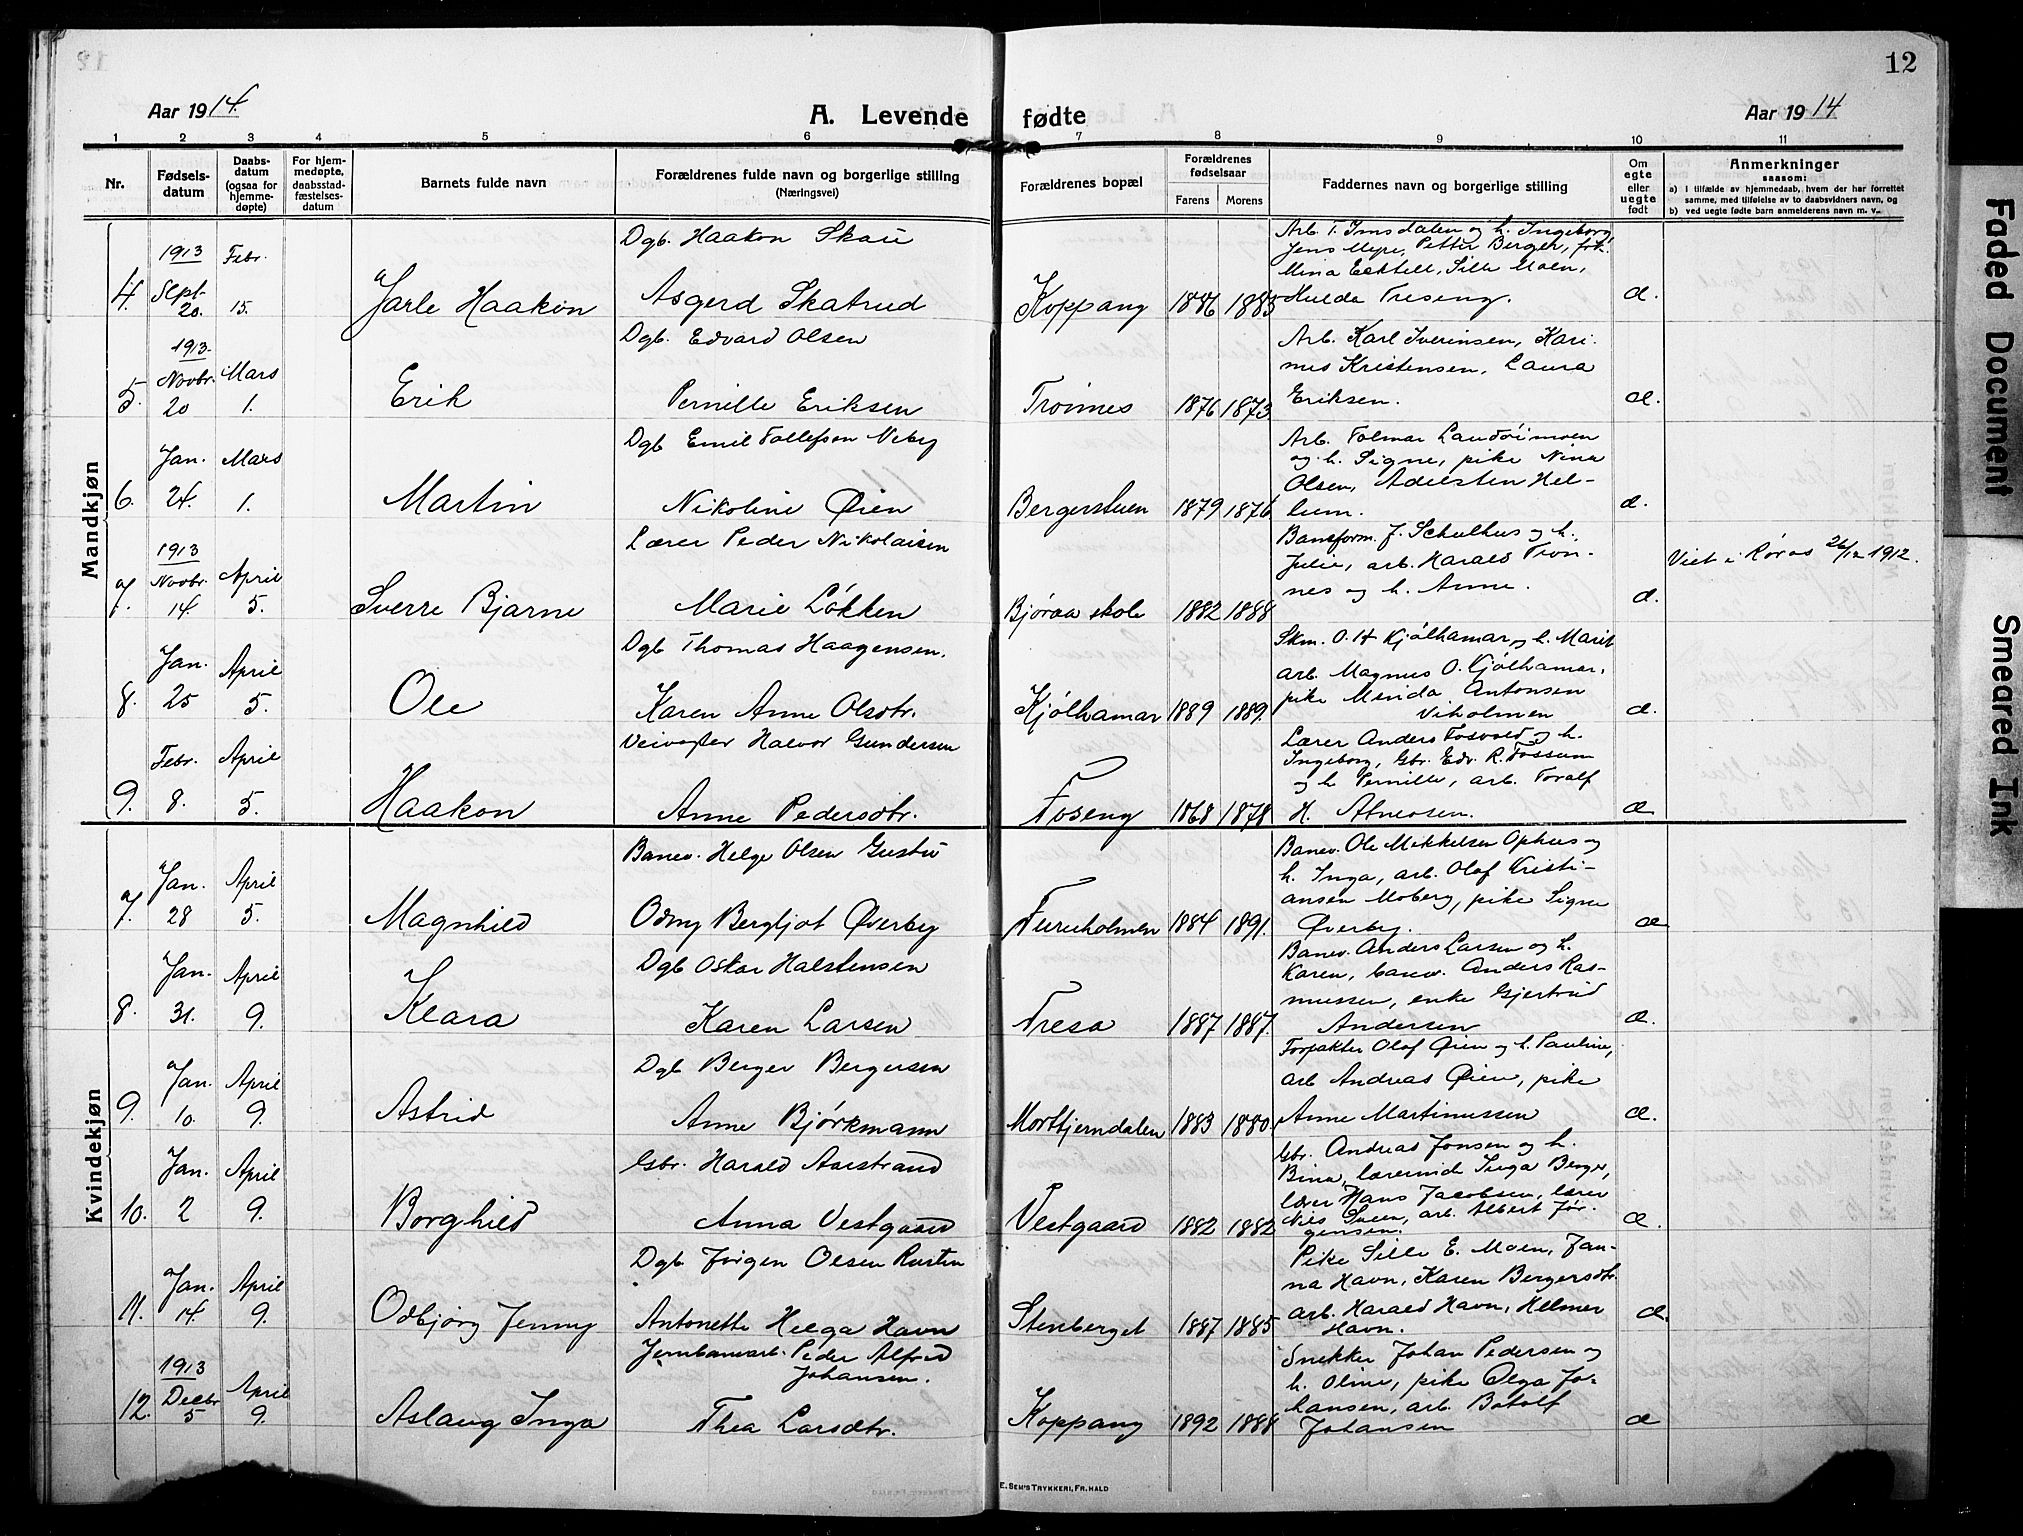 12
Aar 1914.
A. Levende fødte
Aar 1914
1 2 3 4 5 6 7 8 9 10 11
Nr.
Fødsels-
datum
Daabs-
datum
(ogsaa for
hjemme-
døpte)
For hjem-
medøpte,
daabsstad-
fæstelses-
datum
Barnets fulde navn
Forældrenes fulde navn og borgerlige stilling
(Næringsvei)
Forældrenes bopæl
Forældrenes
fødselsaar
Farens Morens
Faddernes navn og borgerlige stilling
Om
egte
eller
uegte
født
Anmerkninger
saasom:
a) i tilfælde av hjemmedaab, hvem der har forrettet
samme, med tilføielse av to daabsvidners navn, og
b) ved uegte fødte barn anmelderens navn m. v.
Mandkjøn
4. 1913 Sept. 20. Febr. 15. Jarle Haakon
Dgb. Haakon Skau
Asgerd Skatrud
Koppang 1886 1883
Arb. T. Imsdalen og h. Ingeborg
Jens Myre, Petter Berger, frk.
Mina Eektell, Sille Moen,
Hulda Treseng.
æ.
5. 1913. Novbr. 20 Mars 1. Erik
Dgb. Edvard Olsen
Pernille Eriksen
Trønnes 1876 1873
Arb. Karl Iverinsen, Kari-
nus Kristensen, Laura
Eriksen.
æ.
6. Jan. 24. Mars 1. Martin
Dgb Emil Tollefsen Neby
Nikoline Øien
Bergerstuen 1879 1876
Arb. Tolmar Landsimoen
og h. Signe, pike Nina
Olsen, Adelsten Hel-
lum.
æ.
7. 1913 Novbr. 14 April 5. Sverre Bjarne
Lærer Peder Nikolaisen
Marie Løkken
Bjøraa skole 1882 1888
Banform. J. Schulhus og h.
Julie, arb. Harald Trøn-
nes og h. Anne.
æ.
Viet i Røros 26/12 1912.
8. Jan. 25 April 5. Ole
Dgb Thomas Haagensen.
Karen Anne Olsdtr.
Kjølhamar 1889 1889.
Skm. O. H Kjølhamar og h. Marit
arb. Magnus O. Kjølhamar,
pike Minda Antonsen
Viholmen
æ.
9. Febr. 8. April 5. Haakon
Veivogter Halvor Gundersen
Anne Pedersdtr.
Foseng 1868 1878
Lærer Anders Fosvold og h.
Ingeborg, Gbr. Edv. R. Fossum
og h Pernille, arb. Toralf
H. Atneosen.
æ
Kvindekjøn
7. Jan. 28 April 5. Magnhild
Banev. Helge Olsen Gustu
Odny Bergljot Øverby
Furuholmen 1884 1891.
Banev. Ole Mikkelsen Ophus og
h. Inga, arb. Olaf Kristi-
ansen Moberg, pike Signe
Øverby.
æ
8. Jan. 31. April 9. Klara
Dgb Oskar Halstensen
Karen Larsen
Tresa 1887 1887.
Banev. Anders Larsen og h.
Karen, banev. Anders Ras-
mussen, enke Gjertrud
Andersen
æ.
9. Jan. 10. April 9. Astrid
Dgb Berger Bergersen
Anne Bjørkmann
Morttjerndalen 1883 1880
Forpakter Olaf Øien og h. Pauline,
arb Andreas Øien, pike
Anne Martinussen
æ.
10. Jan. 2 April 9. Borghild
Gbr. Harald Aarstrand
Anna Vestgaard
Vestgaard 1882 1882
Gbr. Andreas Jonsen og h.
Bina, lærerinde Inga Berger,
lærer Hans Jacobsen, lærer
Nils Sveen, arb. Albert Jør-
gensen.
æ.
11. Jan. 14. April 9. Odbjørg Jenny
Dgb Jørgen Olsen Rusten
Antonette Helga Havn
Stenberget 1887 1885
Pike Sille E. Moen, Jan-
na Havn, Karen Bergersdtr.
arb. Harald Havn, Helmer
Havn.
æ.
12. 1913 Decbr 5 April 9. Aslaug Inga
Jernbanearb. Peder Alfred
Johansen.
Thea Larsdtr.
Koppang 1892 1888
Snekker Johan Pedersen og
h. Oline, pike Olga Jo-
hansen, arb. Botolf
Johansen
æ
E. SEM'S TRYKKERI, FR.HALD
Faded Document
Smeared Ink